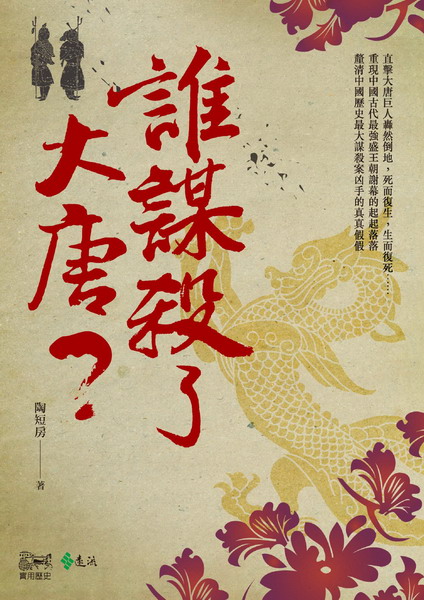 直擊大唐巨人轟然倒地，死而復生，生而復死……
重現中國古代最強盛王朝謝幕的起起落落
釐清中國歷史最大謀殺案凶手的真真假假
誰謀殺了
大唐？
陶短房——著
實用歷史
遠流